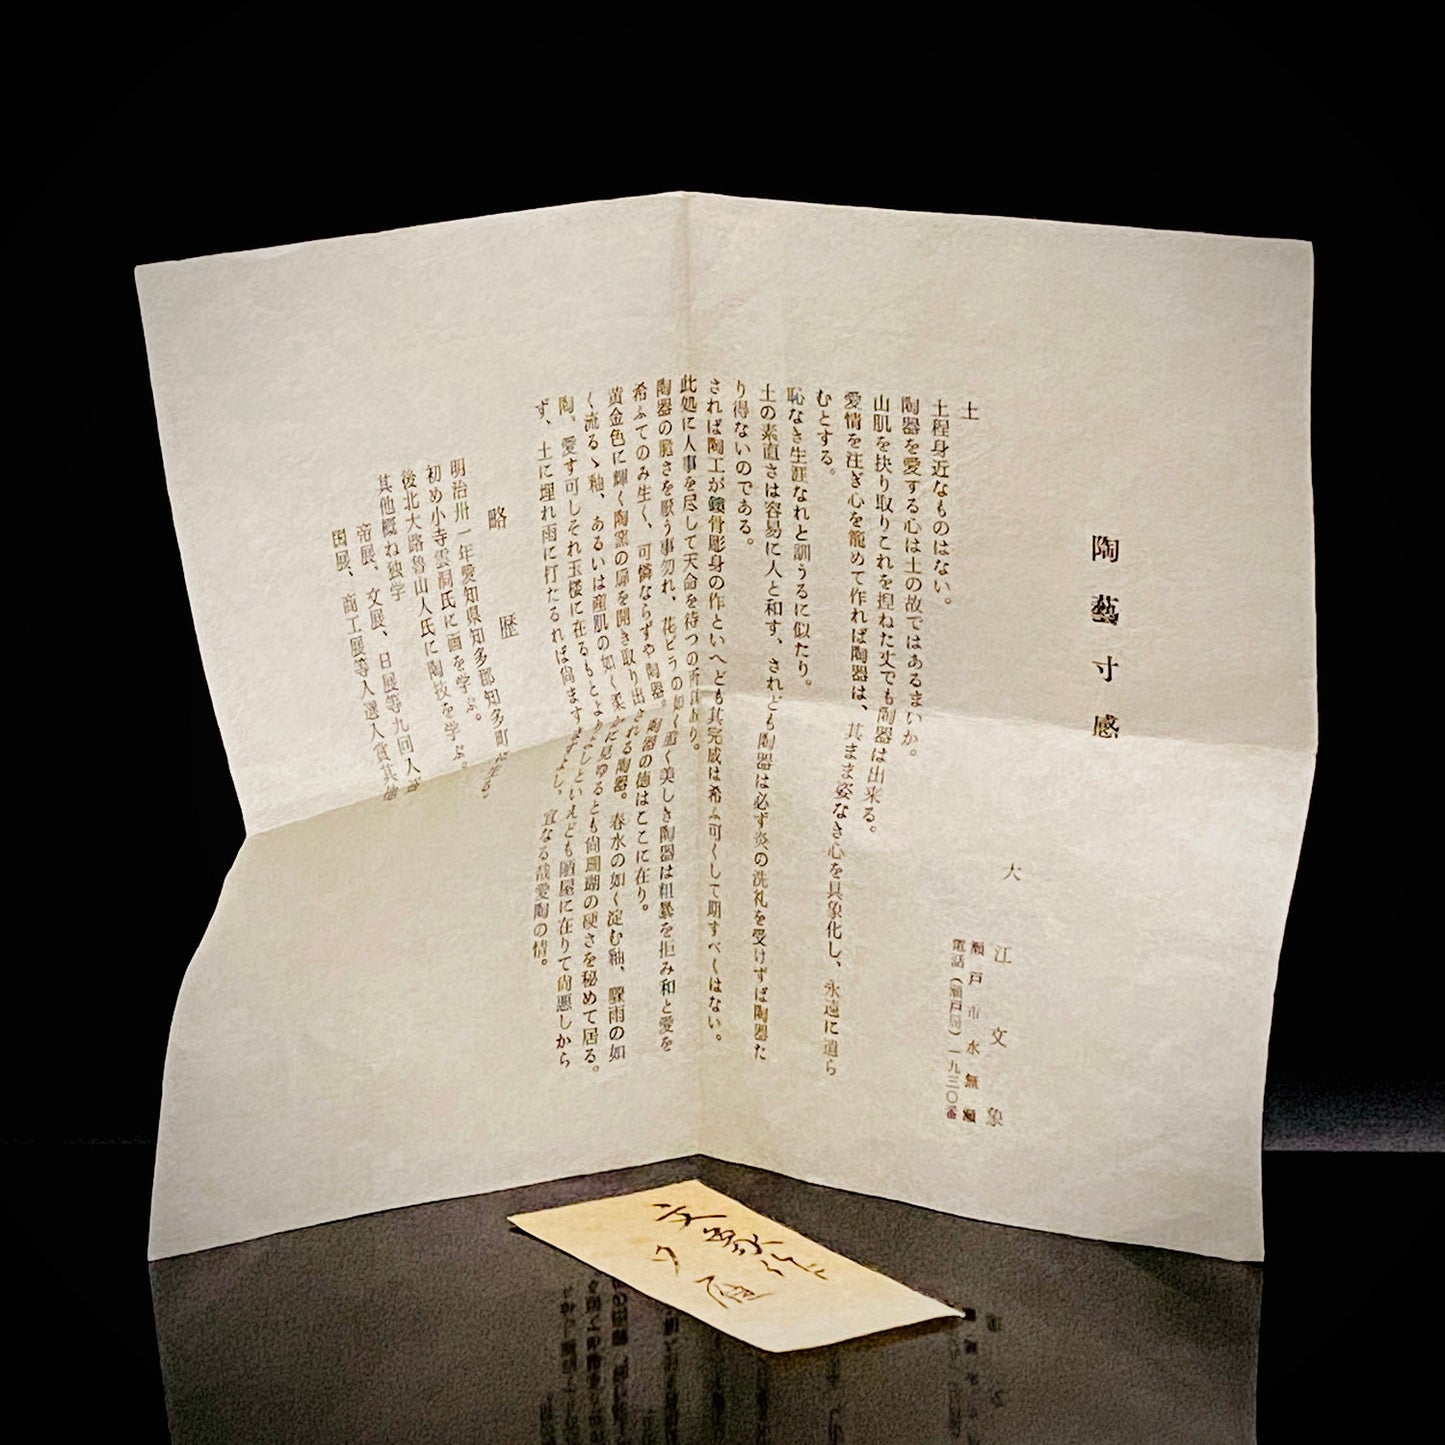 陶藝寸感
大江文象
瀬戸市水無瀬
電話（瀬戸局）一九三〇番
土
土程身近なものはない。
陶器を愛する心は土の故ではあるまいか。
山肌を抉り取りこれを捏ねた丈でも陶器は出来る。
愛情を注ぎ心を籠めて作れば陶器は、其まま姿なき心を具象化し、永遠に遺ら
むとする。
恥なき生涯なれと訓うるに似たり。
土の素直さは容易に人と和す、されども陶器は必ず炎の洗礼を受けずば陶器た
り得ないのである。
されば陶工が鏤骨彫身の作といへども其完成は希ふ可くして期すべくはない。
此処に人事を尽して天命を待つの所以あり。
陶器の脆さを厭う事勿れ、花ビラの如く重く美しき陶器は粗暴を拒み和と愛を
希ふてのみ生く、可憐ならずや陶器。陶器の徳はここに在り。
黄金色に輝く陶窯の扉を開き取り出される陶器。春水の如く淀む釉、驟雨の如
く流るゝ釉、あるいは産肌の如く柔かに見ゆるとも尚珊瑚の硬さを秘めて居る。
陶、愛す可しそれ玉楼に在るもとよりよしといえども陋屋に在りて尚悪しから
ず、土に埋れ雨に打たるれば尚ますますよし。宜なる哉愛陶の情。
略歴
明治卅一年愛知県知多郡知多町に生る
初め小寺雲洞氏に画を学ぶ。
後北大路魯山人氏に陶技を学ぶ。
其他概ね独学
帝展、文展、日展等九回入選
国展、商工展等入選入賞其他
文象作